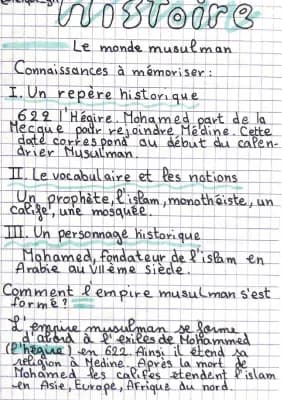 Histoire
Le monde musulman
Connaissances à mémoriser :
I. Un repère historique
622 l'Hégire. Mohamed part de la
Mecque pour rejoindre Médine. Cette
date correspond au début du calen-
drier Musulman.
II. Le vocabulaire et les notions
Un prophète, l'islam, monothéiste, un
calife, une mosquée.
III. Un personnage historique
Mohamed, fondateur de l'islam en
Arabie au VIIème siède.
Comment l'empire musulman s'est
formé ?
L'empire musulman se forme
d'abord à l'exiles de Mohammed
(l'hégire) en 622. Ainsi il étend sa
religion à Médine. Après la mort de
Mohamed les califes étendent l'islam
en Asie, Europe, Afrique du nord.